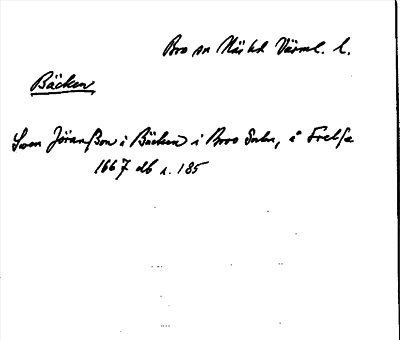 Bro sn Näs hd Värml. l.
Bäcken
Swen Jöranßon i Bäcken i Broo Sokn, i Frelse
1667 db s. 185